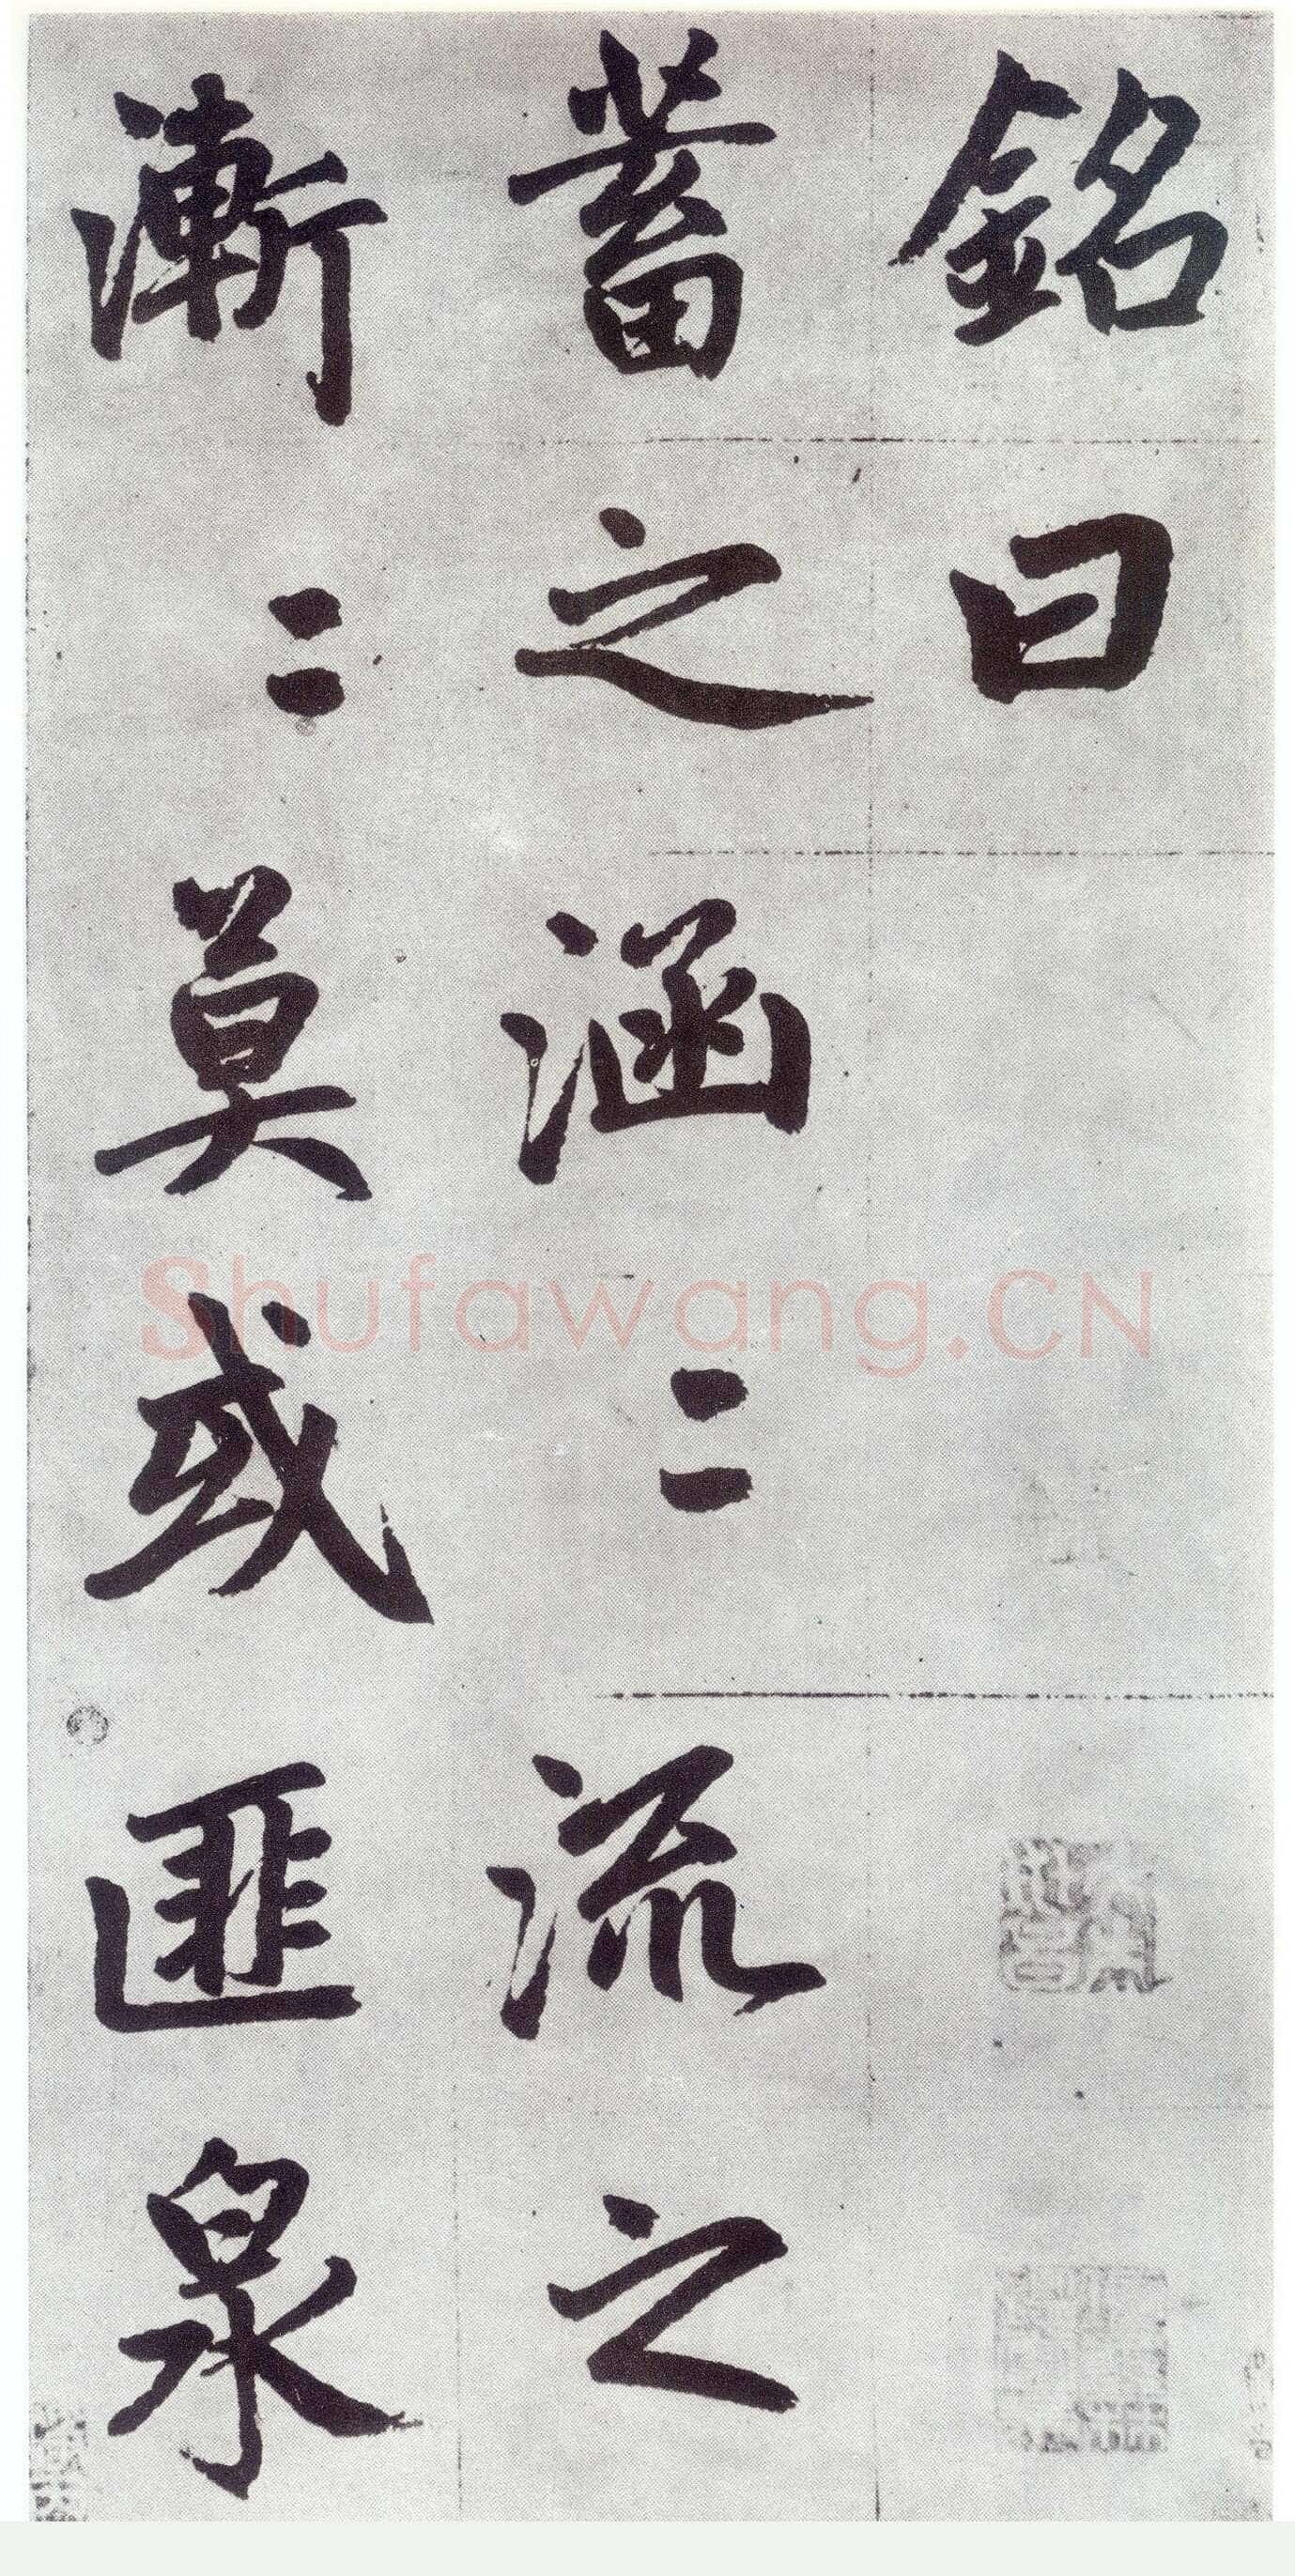 銘曰
蓄之涵〻流之
漸〻莫或匪泉
Shufawang.CN